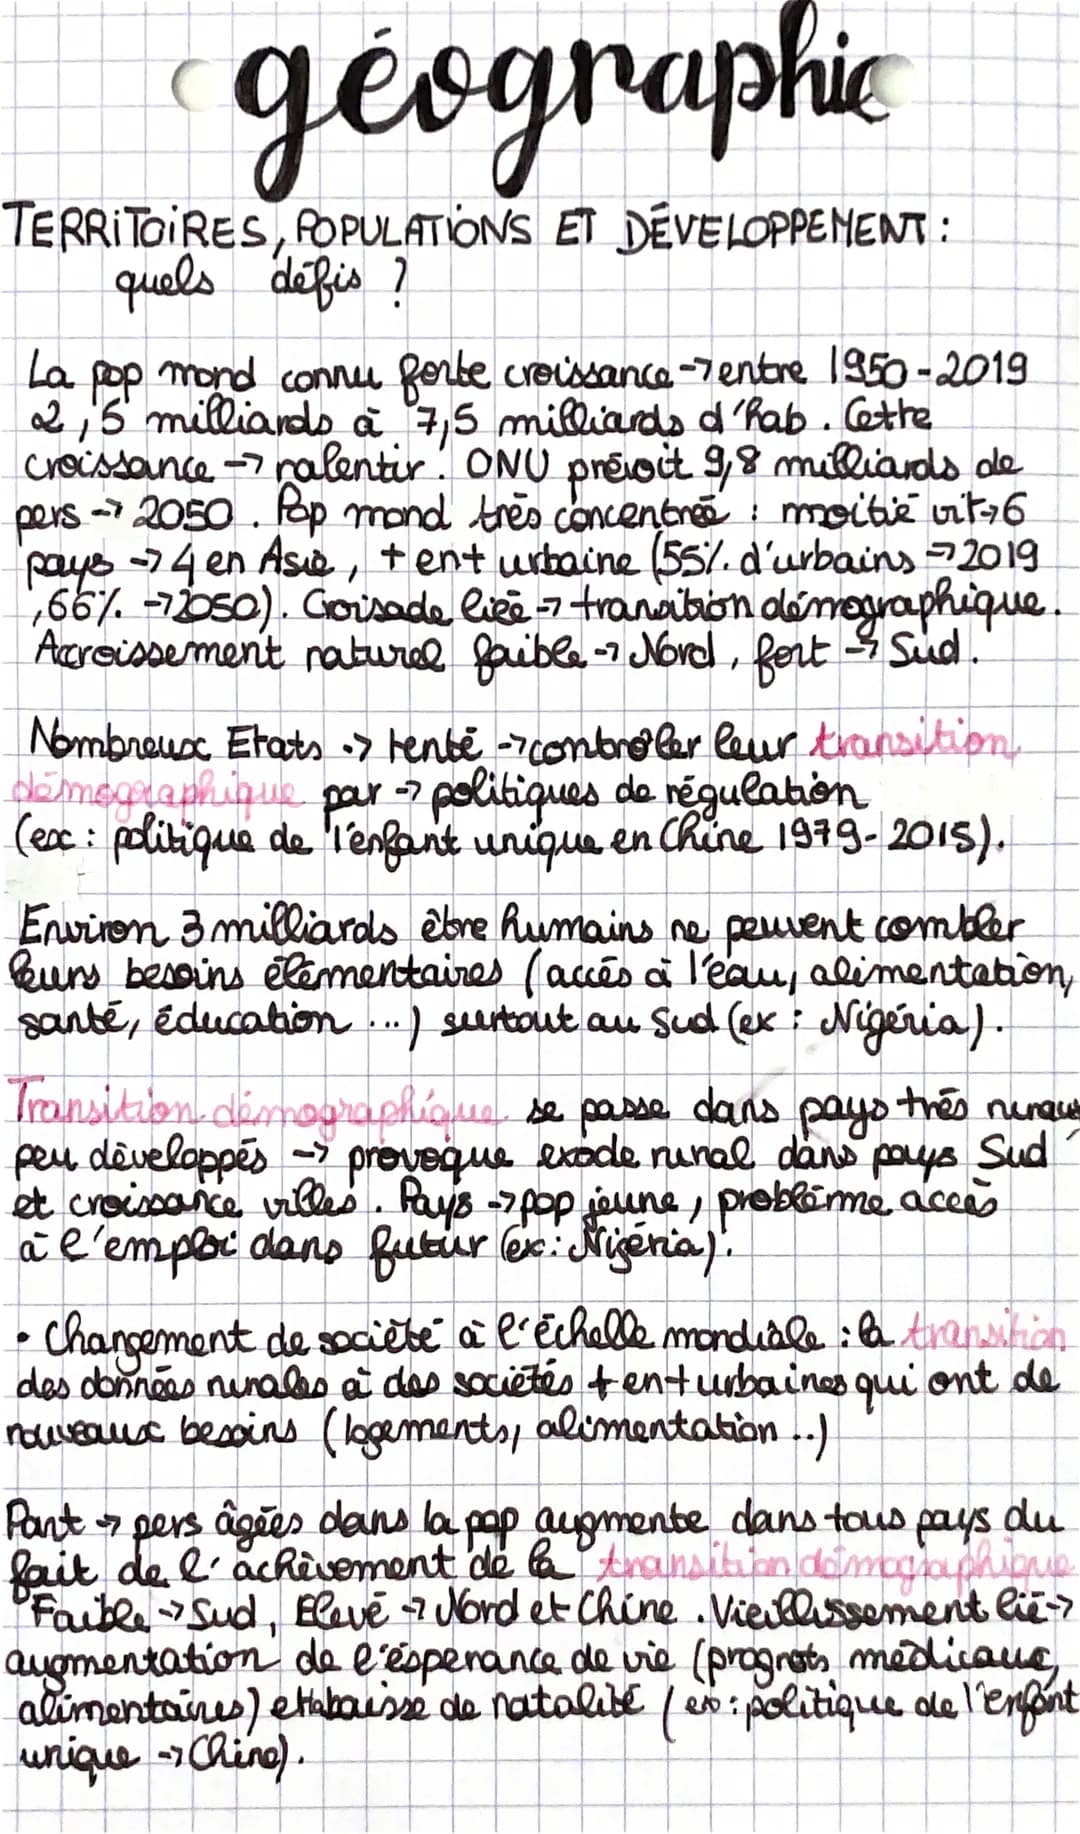 géographie
TERRITOIRES, POPULATIONS ET DÉVELOPPEMENT :
quels défis ?
La pop mond connu forte croissance → entre 1950-2019
2,5 milliards à 7,5 milliards d'hab. Cette
croissance → ralentir. ONU prévoit 9,8 milliards de
pers → 2050. Pop mond très concentrée : moitié vit → 6
pays → 4 en Asie, + ent urbaine (55% d'urbains → 2019
, 66% → 2050). Croisade liée → transition démographique.
Accroissement naturel faible → Nord, fort → Sud.
Nombreux Etats → tenté → contrôler leur transition
démographique par → politiques de régulation
(ex : politique de l'enfant unique en Chine 1979-2015).
Environ 3 milliards être humains ne peuvent combler
leurs besoins élémentaires (accès à l'eau, alimentation,
santé, éducation ...) surtout au Sud (ex : Nigéria).
Transition démographique se passe dans pays très ruraux
peu développés → provoque exode rural dans pays Sud
et croissance villes. Pays → pop jeune, problème accès
à l'emploi dans futur (ex : Nigéria).
• Changement de société à l'échelle mondiale : la transition
des données rurales à des sociétés + ent urbaines qui ont de
nouveaux besoins (logements, alimentation ..)
Part → pers âgées dans la pop augmente dans tous pays du
fait de l'achèvement de la transition démographique
Faible → Sud, Elevé → Nord et Chine. Vieillissement lié →
augmentation de l'ésperance de vie (progrots médicaux,
alimentaires) et baisse de natalité (ex : politique de l'enfant
unique → Chine).